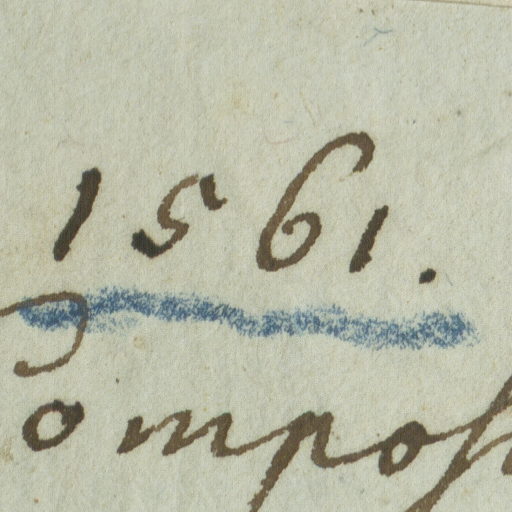 1561.
ompos